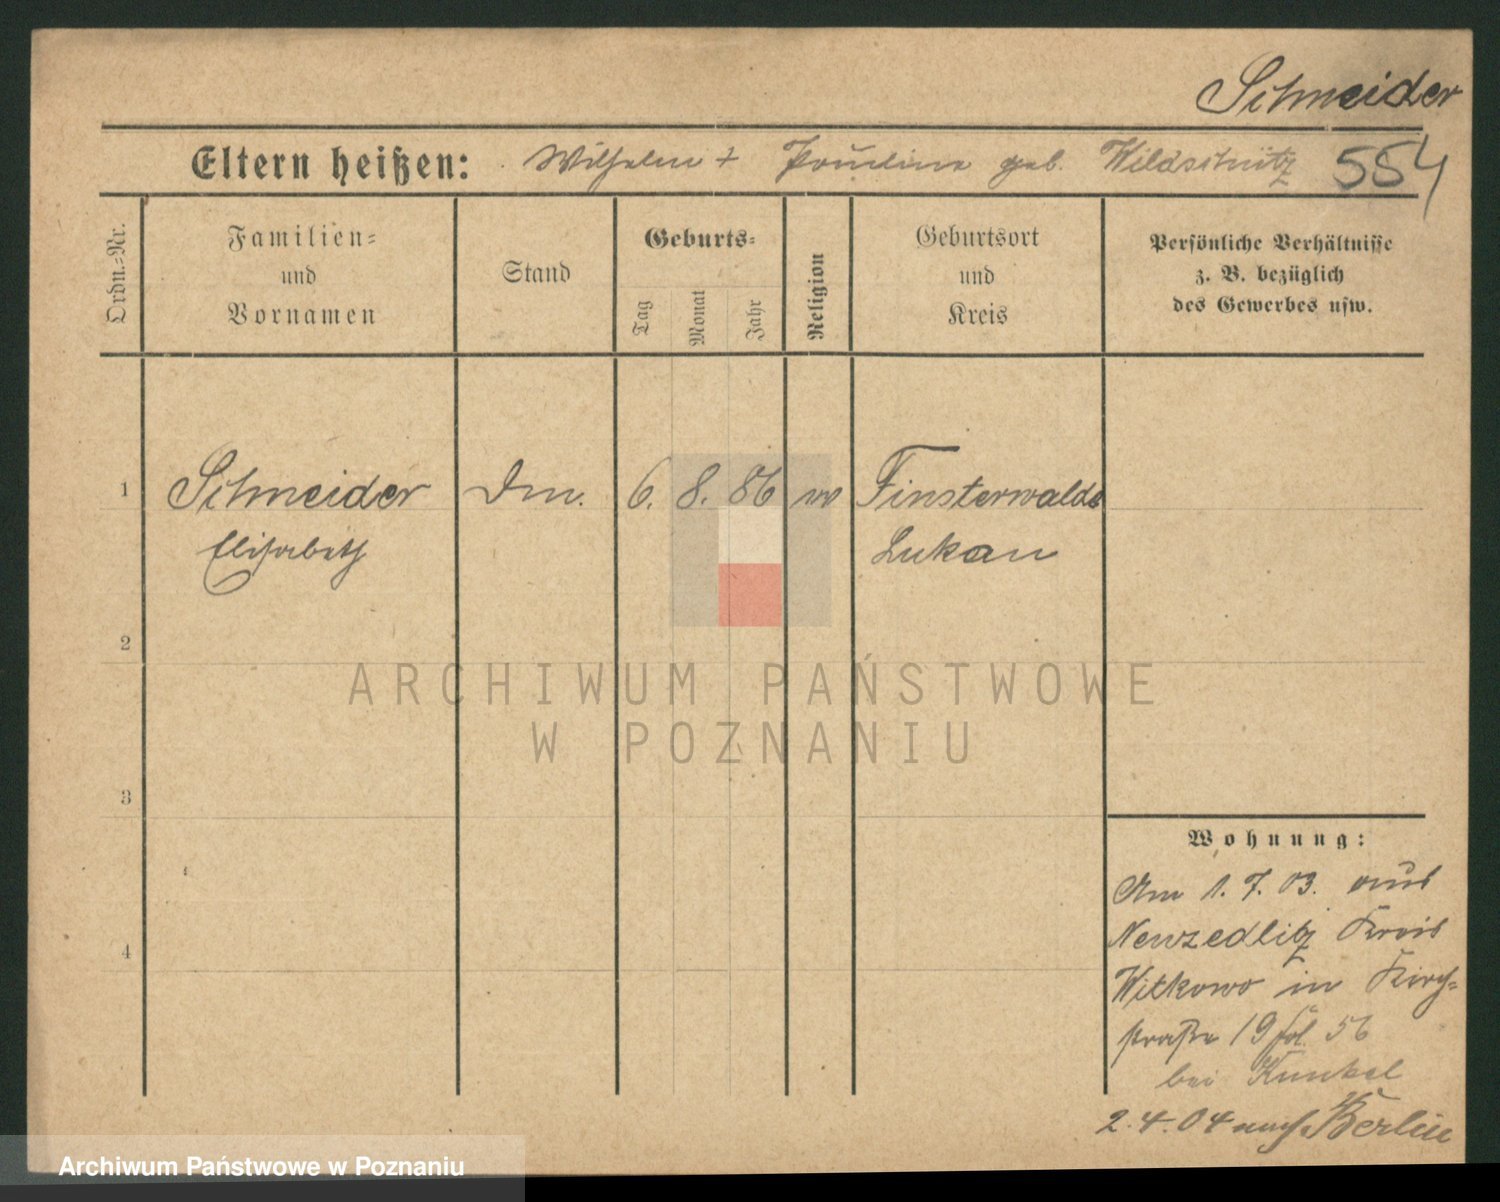 Schneider
Eltern heißen: Wilhelm + Pauline geb. Wildschütz 554
Ordn.-Nr.
Familien-
und
Vornamen
Stand
Geburts-
Tag
Monat
Jahr
Religion
Geburtsort
und
Kreis
Persönliche Verhältnisse
z. B. bezüglich
des Gewerbes usw.
1 Schneider Dm. 6. 8. 86 ev Finsterwalde
Elisabeth Lukau
2
ARCHIWUM PAŃSTWOWE
W POZNANIU
3
Wohnung:
Am 1. 7. 03. aus
Neuzedlitz Kreis
4
Witkowo in Kirch-
straße 19 fol. 56
bei Kunkel
2. 4. 04 nach Berlin
Archiwum Państwowe w Poznaniu